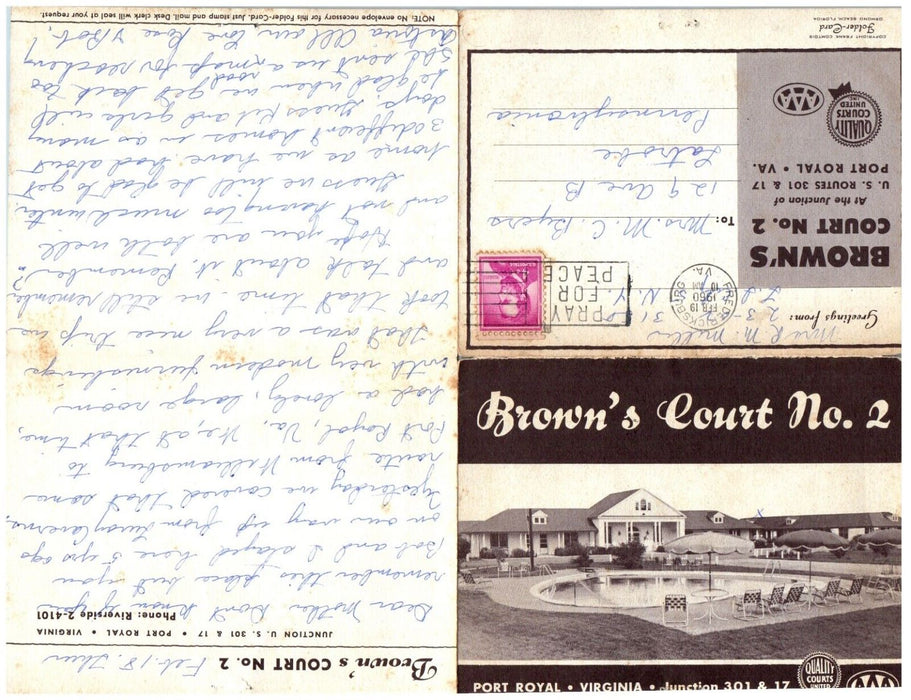 Brown's COURT No. 2
JUNCTION U.S. 301 & 17 • PORT ROYAL • VIRGINIA
Phone: Riverside 2-4101
Feb. 18. Thur
Dear Mother Don't know if you
remember this place but you
Bob and I stayed here 5 yrs ago
on our way up from Luray Caverns.
Yesterday we covered that same
route from Williamsburg to
Port Royal, Va. We, at that time,
had a lovely, large room
with very modern furnishings
That was a very nice trip we
took that time we still remember
and talk about it. Remember?
Hope you are both well
and not having too much winter.
Guess we will be glad to get
home as we have had about
3 different homes in as many
days. Guess Kit and girls will
be glad when we get back too
Sid sent us a road map for reaching
All our love Rose & Bob.
NOTE: No envelope necessary for this Folder-Card. Just stamp and mail. Desk clerk will seal at your request.
COPYRIGHT FRANK COMTOIS
Folder-Card
ORMOND BEACH, FLORIDA
Greetings from:
Mrs R. M. Miller
N.Y.
BROWN'S
COURT No. 2
At the Junction of
U. S. ROUTES 301 & 17
PORT ROYAL • VA.
QUALITY COURTS UNITED INC.
AAA
FREDERICKSBURG
FEB 19
10 AM
1960
VA.
PRAY
FOR
PEACE
To:
Mrs. M. C. Byers
129 Ave B
Latrobe
Pennsylvania
Brown's Court No. 2
x
PORT ROYAL • VIRGINIA • Junction 301 & 17
QUALITY COURTS UNITED
AAA